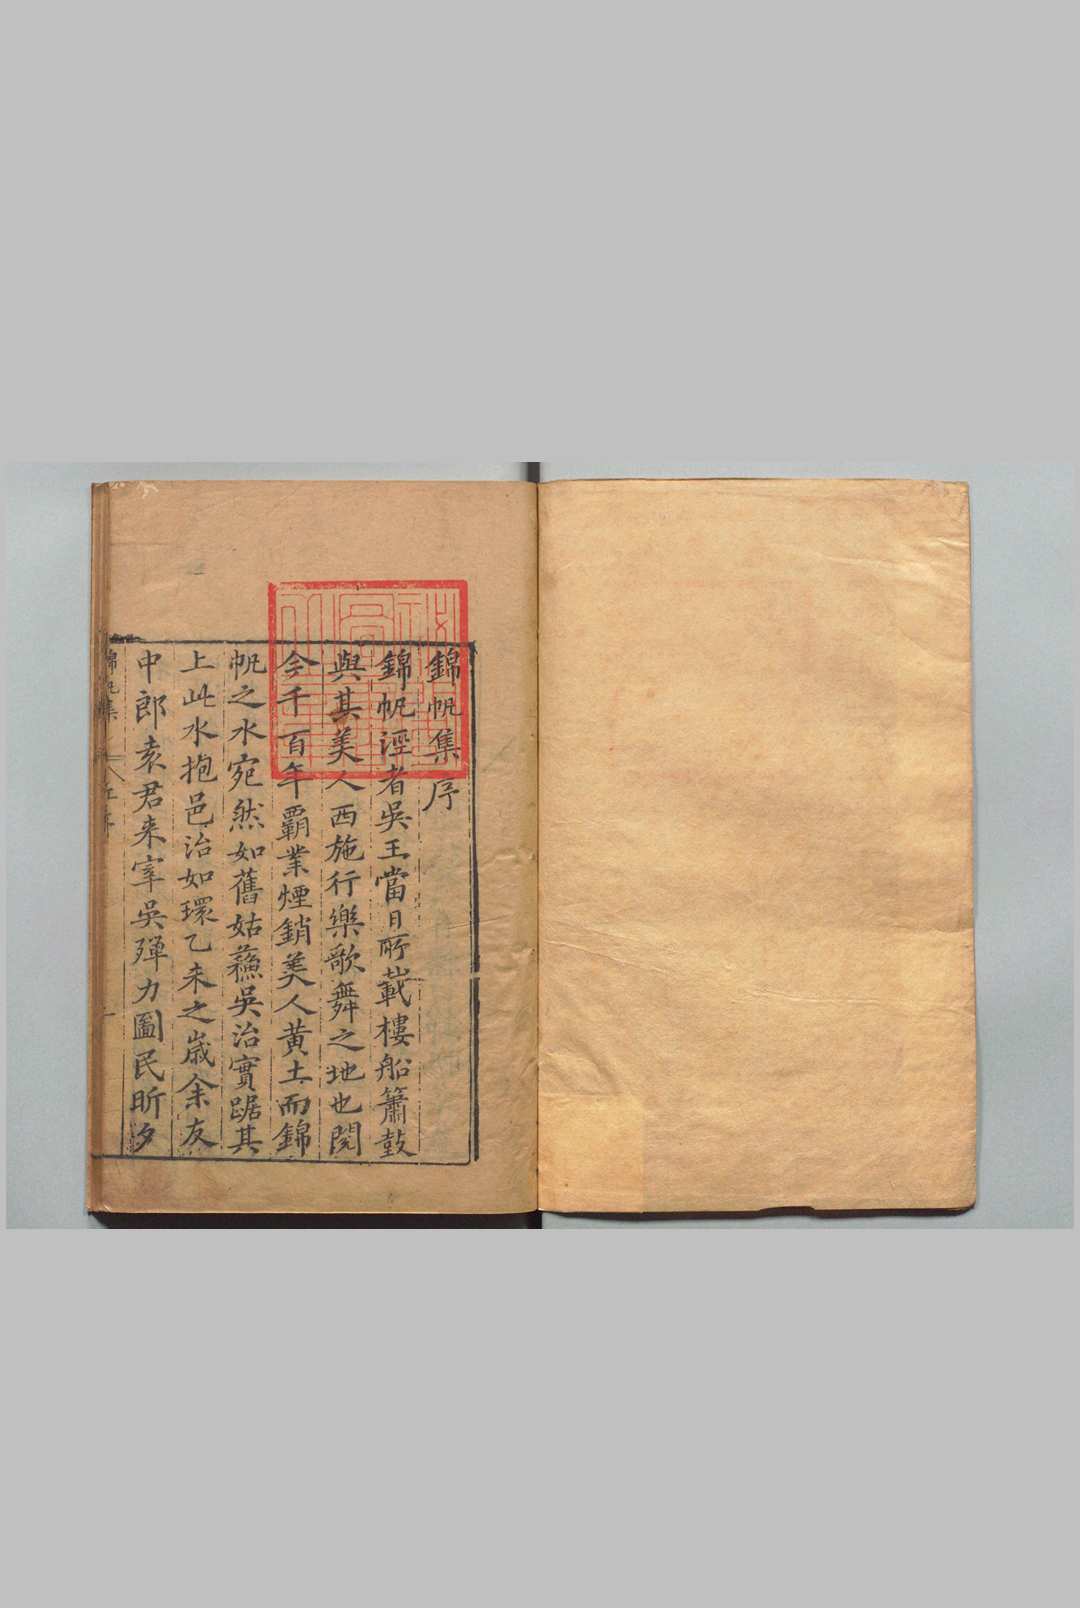 錦帆集序
錦帆涇者吳王當日所載樓船簫鼓
與其美人西施行樂歌舞之地也閱
今千百年霸業煙銷美人黃土而錦
帆之水宛然如舊姑蘓吳治實踞其
上此水抱邑治如環乙未之歲余友
中郎袁君来宰吳殫力圖民昕夕
錦帆集